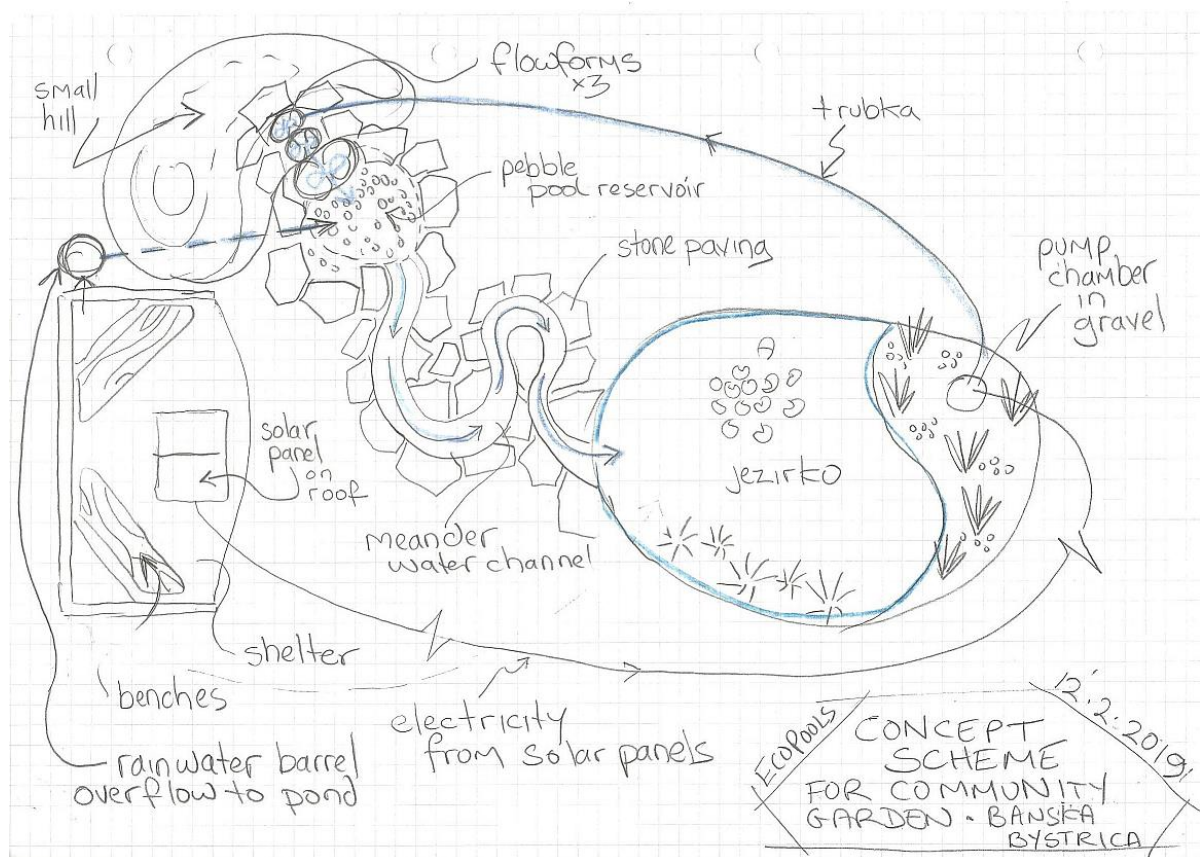 flowforms
x3
small
hill
trubka
pebble
pool reservoir
stone paving
pump
chamber
in
gravel
solar
panel
on
roof
jezirko
meander
water channel
shelter
benches
electricity
from solar panels
rainwater barrel
overflow to pond
ECOPOOLS
12.2.2019
CONCEPT
SCHEME
FOR COMMUNITY
GARDEN - BANSKA
BYSTRICA